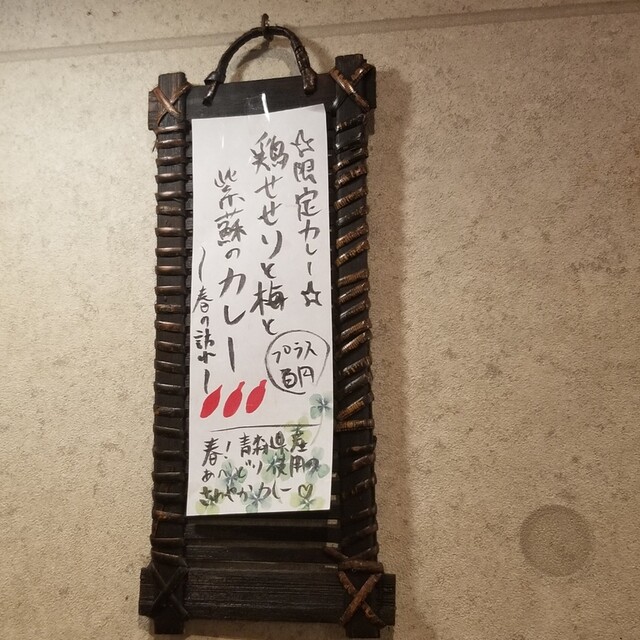 ☆限定カレー☆
鶏せせりと梅と
紫蘇のカレー
~春の訪れ~
プラス
百円
春!青森県産
あべどり使用の
さわやかカレー♡